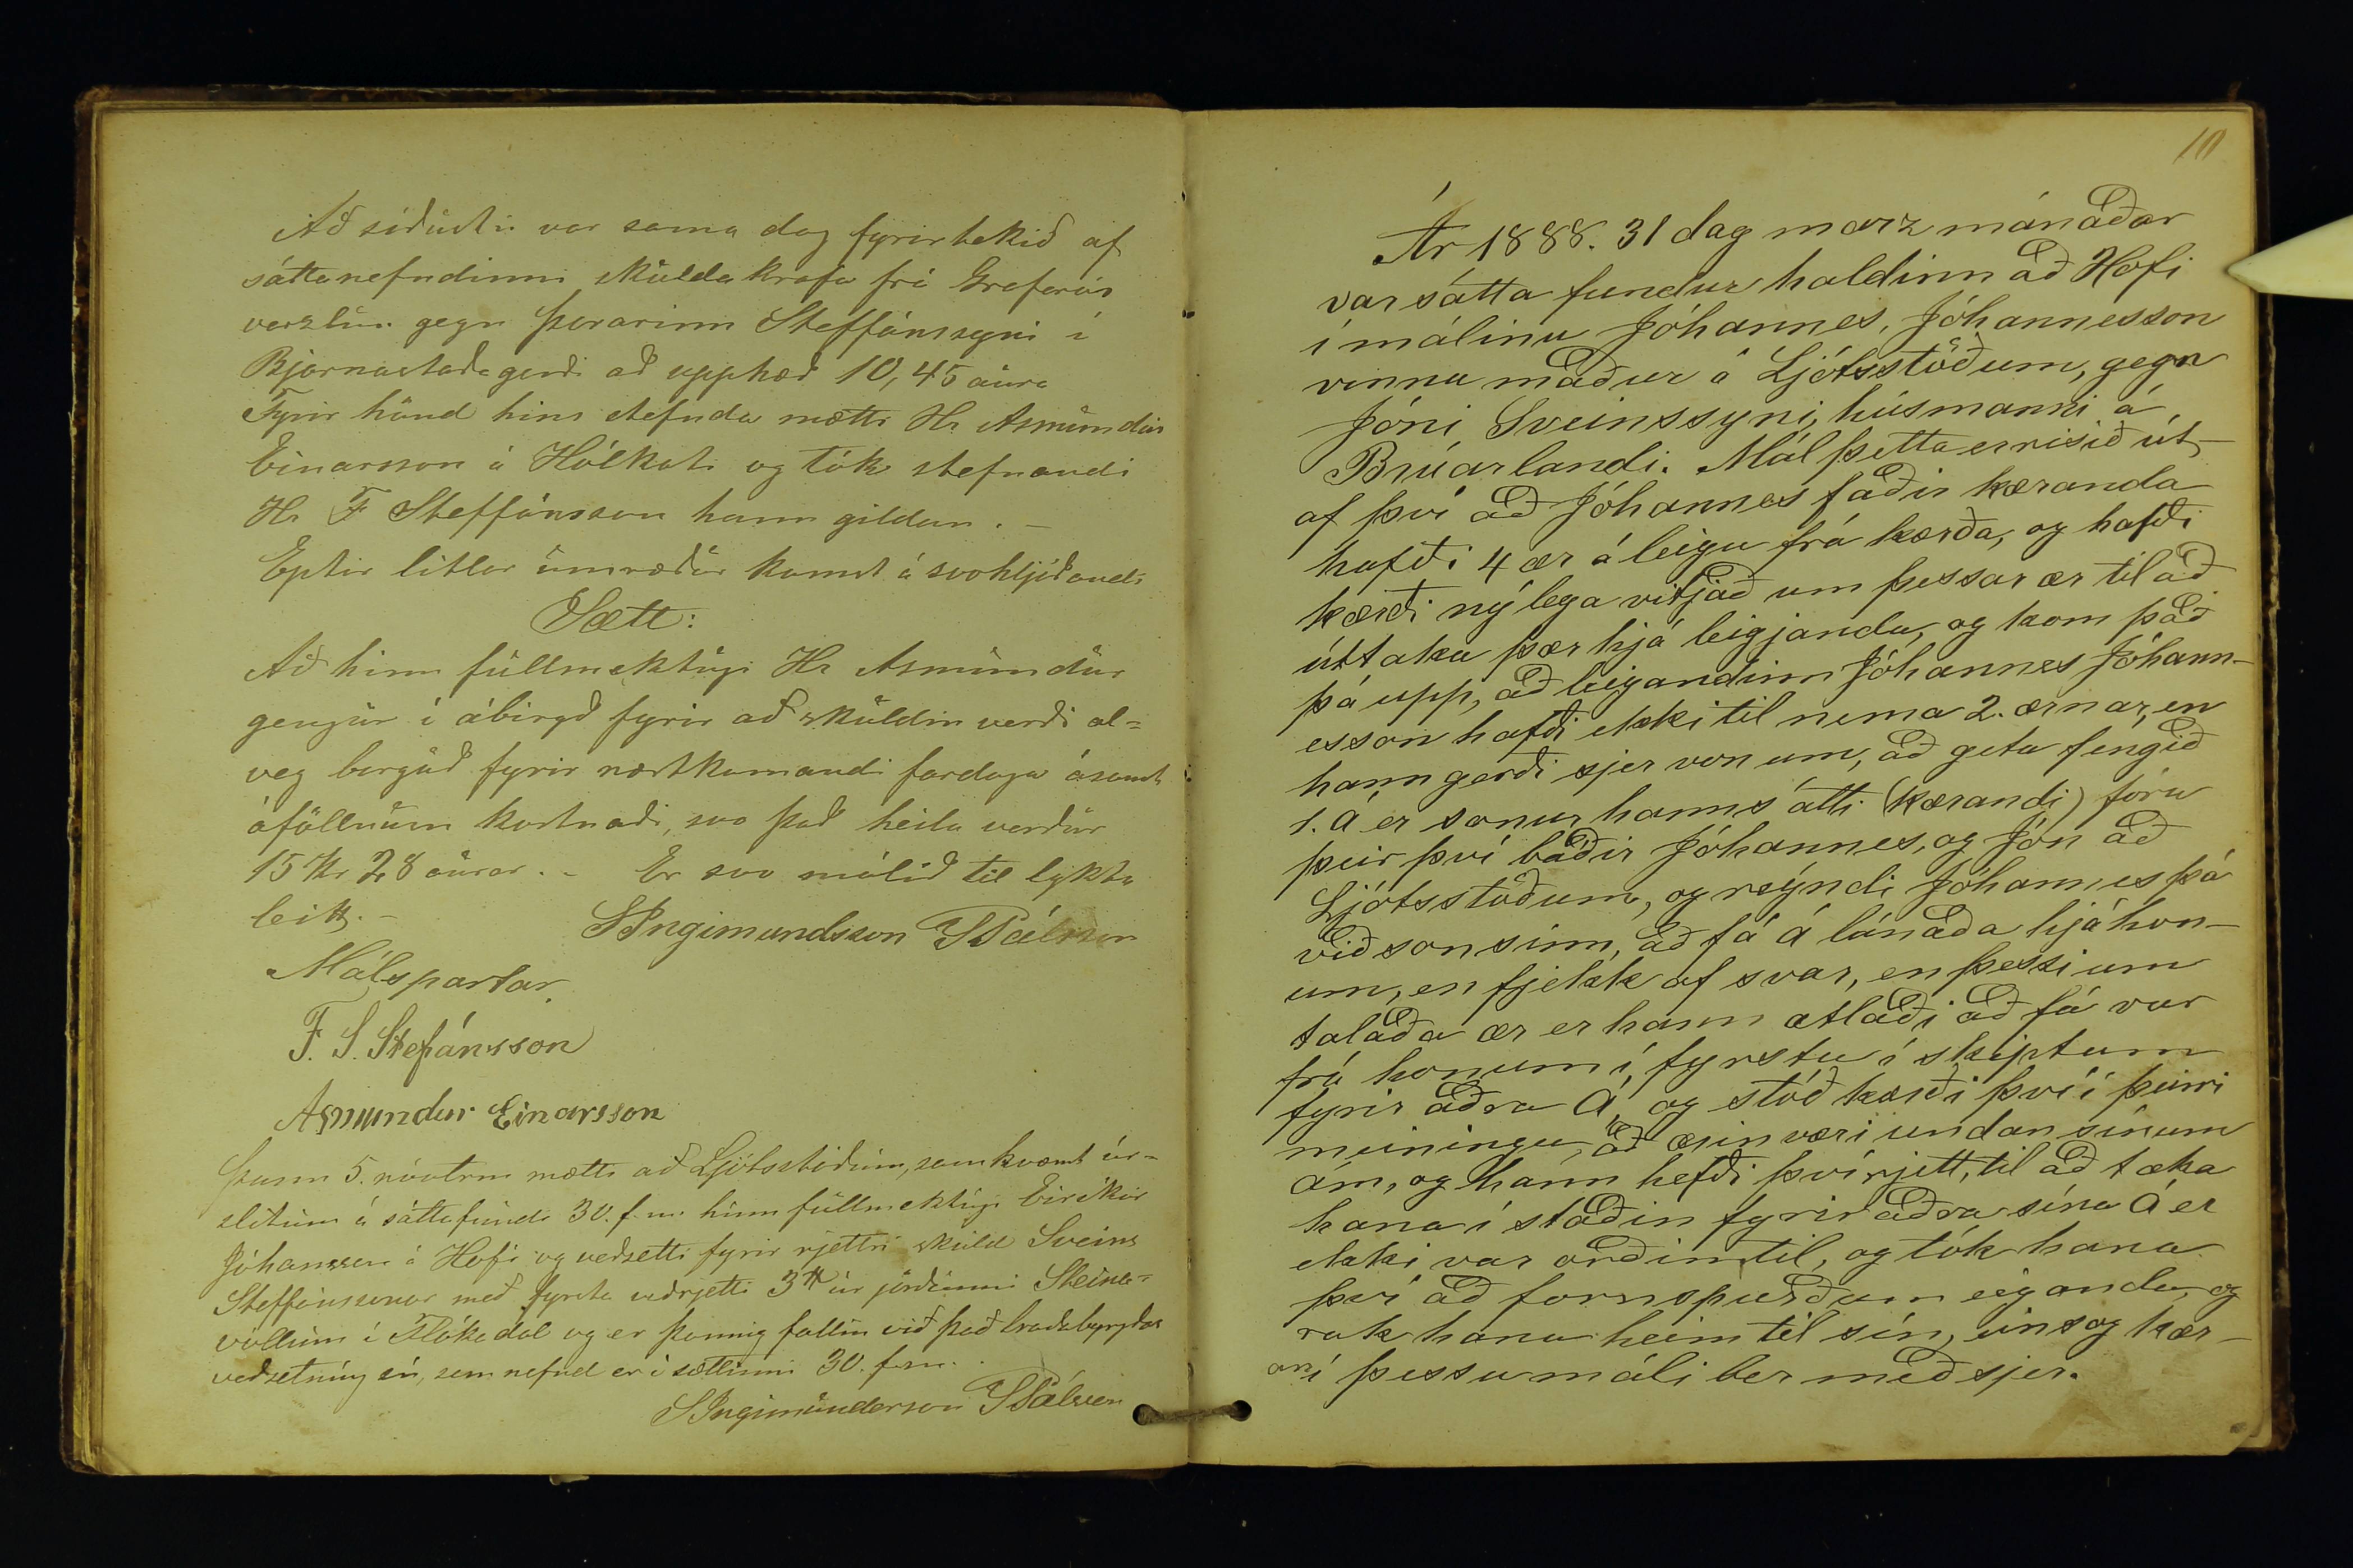 Að síðústu var sama dag fyrirtekið af
sáttanefndinni skúlda krafa frá Grafarós
verzlún gegn Þorarinn Steffánssyni í
Bjarnastaðagerði að upphæð 10,45 aúra
Fyrir hönd hins stefnda mætti Hr Asmúndúr
Einarsson á Hólkoti og tók stefnandi
Hr F Steffánsson hann gildan. —
Eptir litlar úmræðúr komst á svohljóðandi
Sætt:
Að hinn fúllmektúgi Hr Asmúndúr
gengúr í ábirgð fyrir að skúldin verði al=
veg borgúð fyrir næstkomandi fardaga ásamt
áföllnúm kostnaði, svo það heila verðúr
15 Kr 28 aúrar. - Er svo málið til lykta
leitt. -
SIngimundsson SPálsson
Málspartar
F. S. Stefánsson
Asmundur Einarsson
Þann 5. nóvbrm mætti að Ljótsstöðúm, samkvæmt úr-
slitúm á sáttafúndi 30. f. m. hinn fúllmektúgi Eiríkúr
Jóhansson á Hofi og veðsetti fyrir rjettri skúld Sveins
Steffánssonar með fyrsta veðrjetti 3 úr jörðinni Steina-
völlúm í Flókadal og er þannig fallin við það bradabyrgðar
veðsetning sú, sem nefnd er í sættinni 30. f. m. .
SIngimúnderson SPálsson
10
Ár 1888. 31 dag marz mánaðar
var sátta fundur haldinn að Hofi
í málinu Jóhannes, Jóhannesson
vinnu maður á Ljótsstöðum, gegn
Jóni Sveinssyni, húsmanni á
Brúarlandi. Mál þetta er risið út-
af því að Jóhannes faðir kæranda
hafði 4 ær á leigu frá kærða, og hafði
kærði nýlega vitjað um þessar ær til að
úttaka þær hjá leigjanda, og kom það
þá upp, að leigandinn Jóhannes Jóhann-
esson hafði ekki til nema 2. ærnar, en
hann gerði sjer von um, að geta fengið
1. á er sonur hanns átti (kærandi) fóru
þeir því báðir Jóhannes, og Jón að
Ljótsstöðum, og reyndi Jóhannes þá
við son sinn, að fá á lánaða hjá hon-
um, en fjekk af svar, en þessi um
talaða ær er hann ætlaði að fá var
frá honum í fyrstu í skiptum
fyrir aðra á, og stóð kærði því í þeirri
meiningu, að ærin væri undan sínum
ám, og hann hefði því rjett, til að taka
hana í staðin fyrir aðra sína á er
ekki var orðin til, og tók hana
því að fornspurðum eiganda, og
rak hana heim til sín, eins og kær-
an í þessu máli ber með sjer.